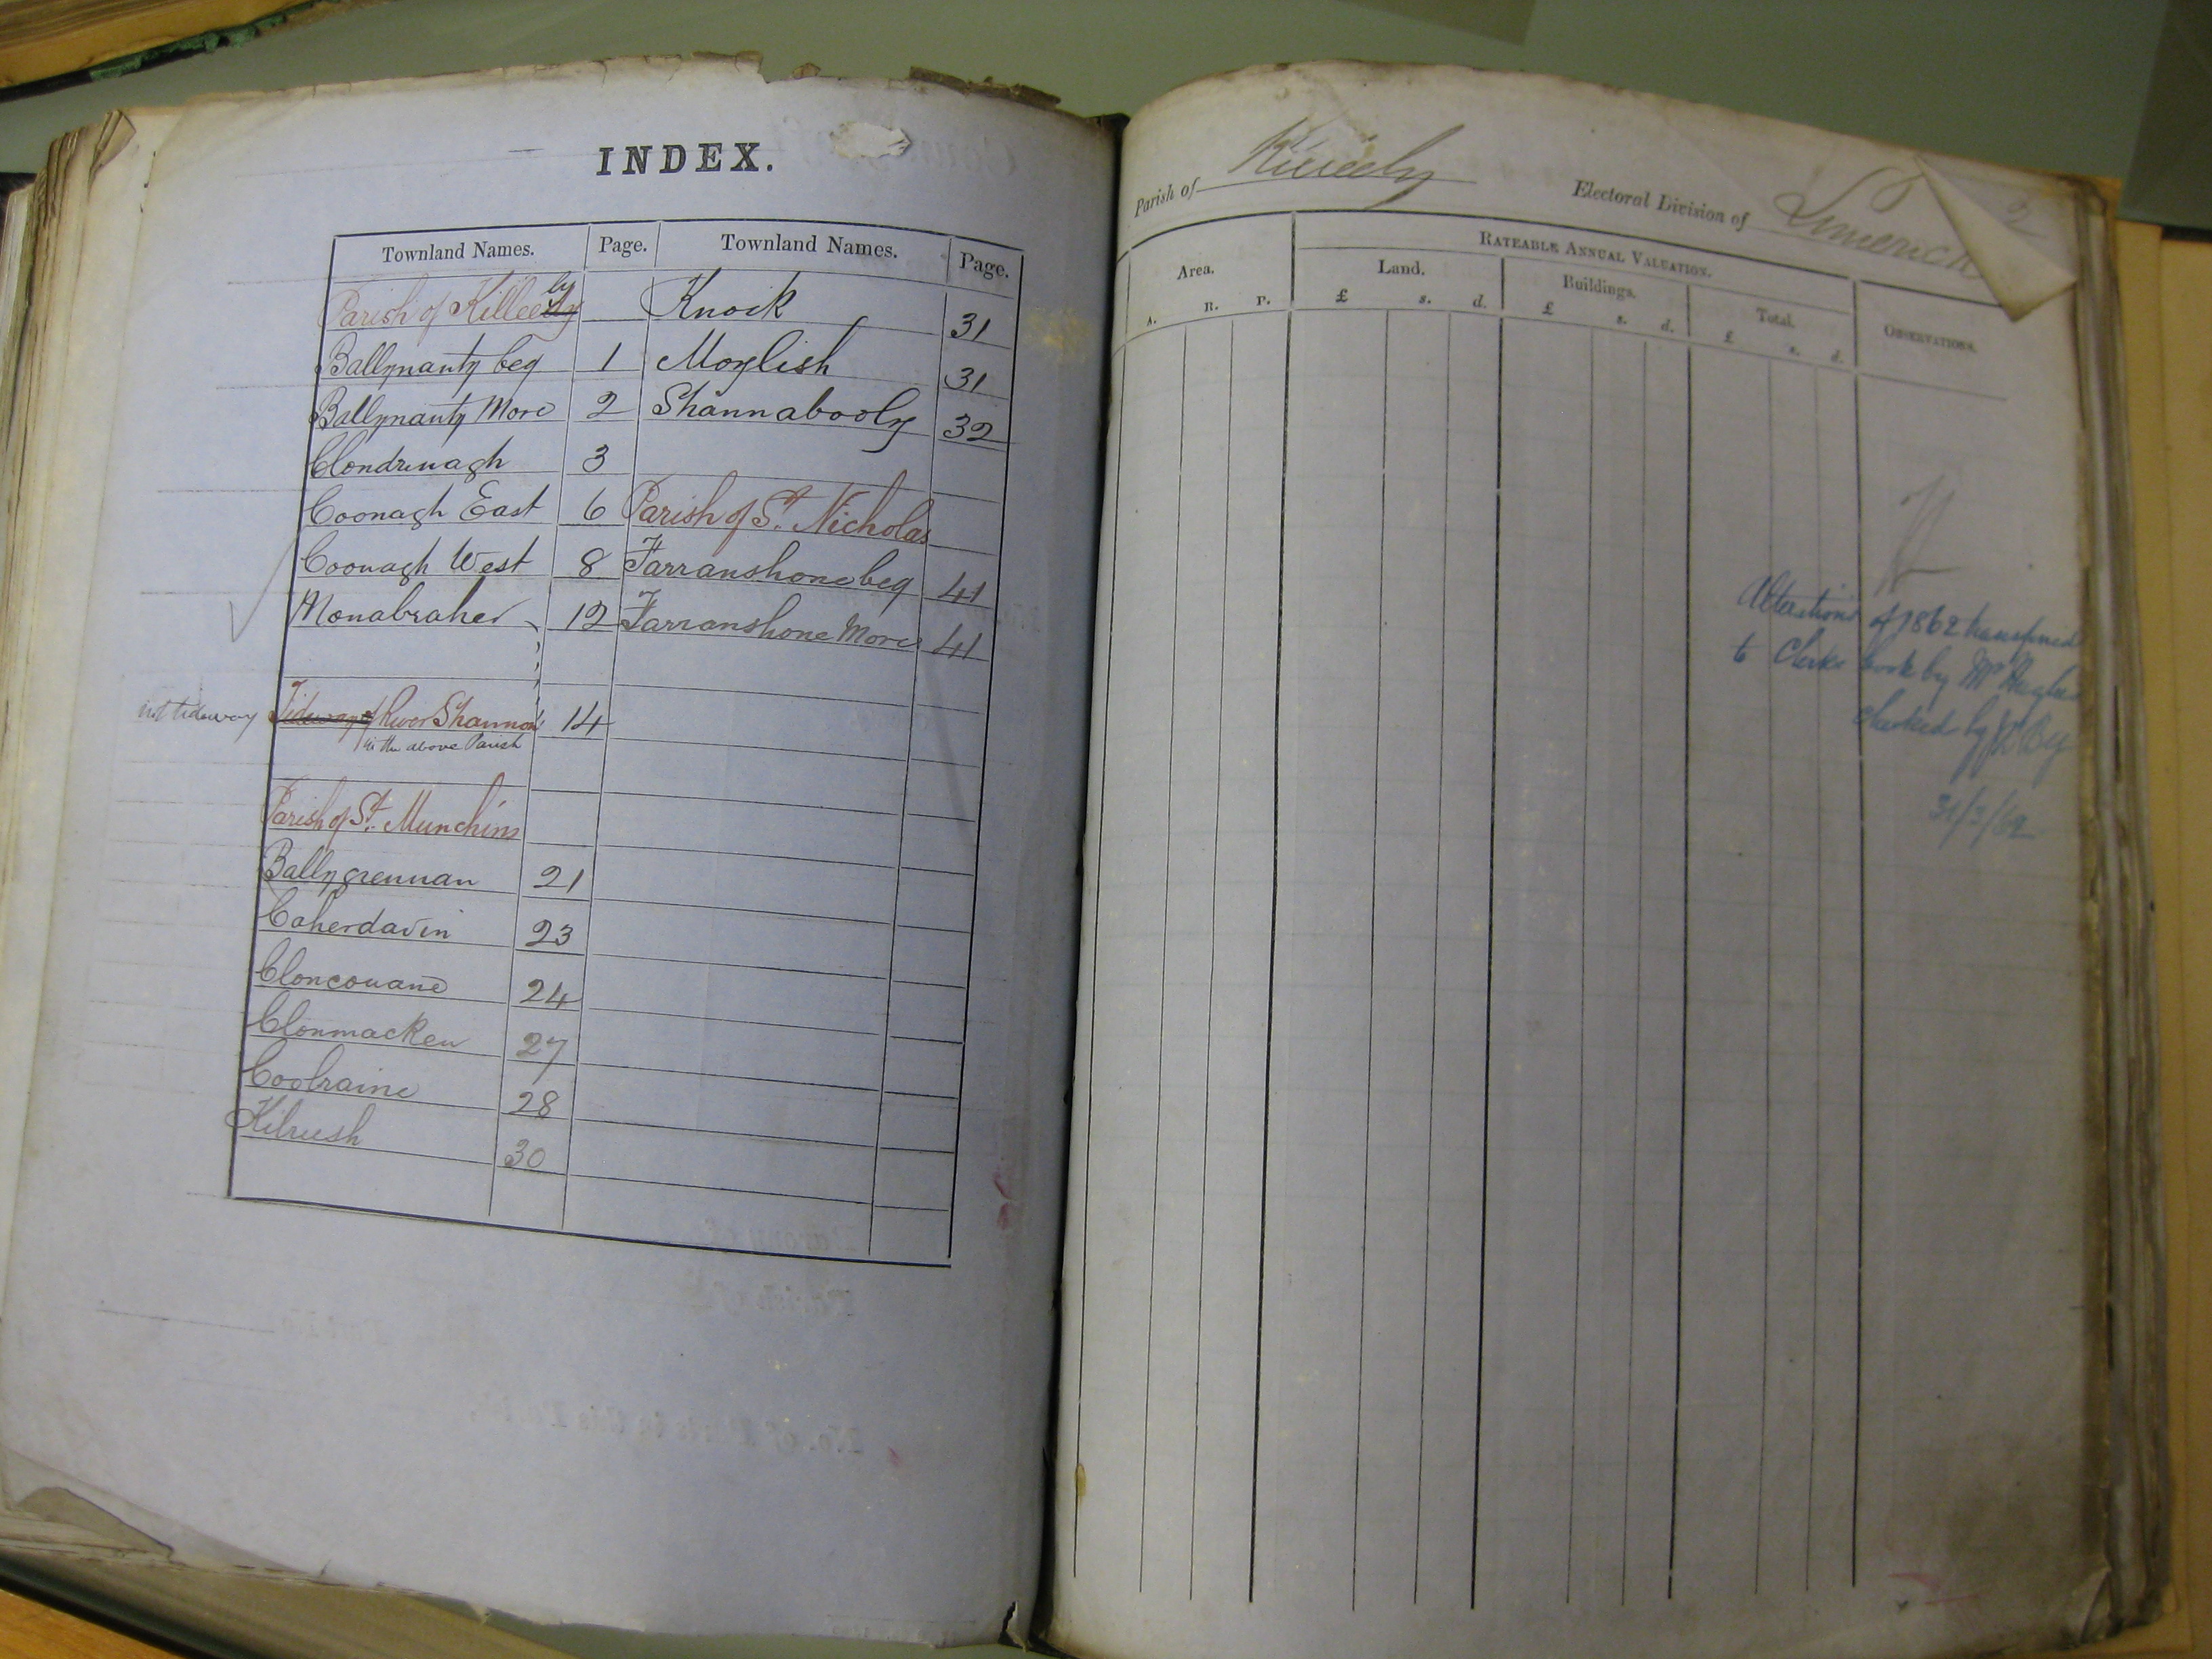 INDEX.
Townland Names. Page. Townland Names. Page.
Parish of Killeely Knock 31
Ballynanty beg 1 Moylish 31
Ballynanty More 2 Shannabooly 32
Clondrinagh 3
Coonagh East 6 Parish of St. Nicholas
Coonagh West 8 Farranshone beg 41
Monabraher 12 Farranshone More 41
not tideway Tideway of River Shannon 14
in the above Parish
Parish of St. Munchins
Ballygrennan 21
Caherdavin 23
Cloncouane 24
Clonmacken 27
Coolraine 28
Kilrush 30
Parish of Killeely Electoral Division of Limerick
RATEABLE ANNUAL VALUATION.
Area. Land. Buildings. Total. OBSERVATIONS.
A. R. P. £ s. d. £ s. d. £ s. d.
Alterations of 1862 transferred
to Clerks book by Mr Hughes
checked by
31/3/62